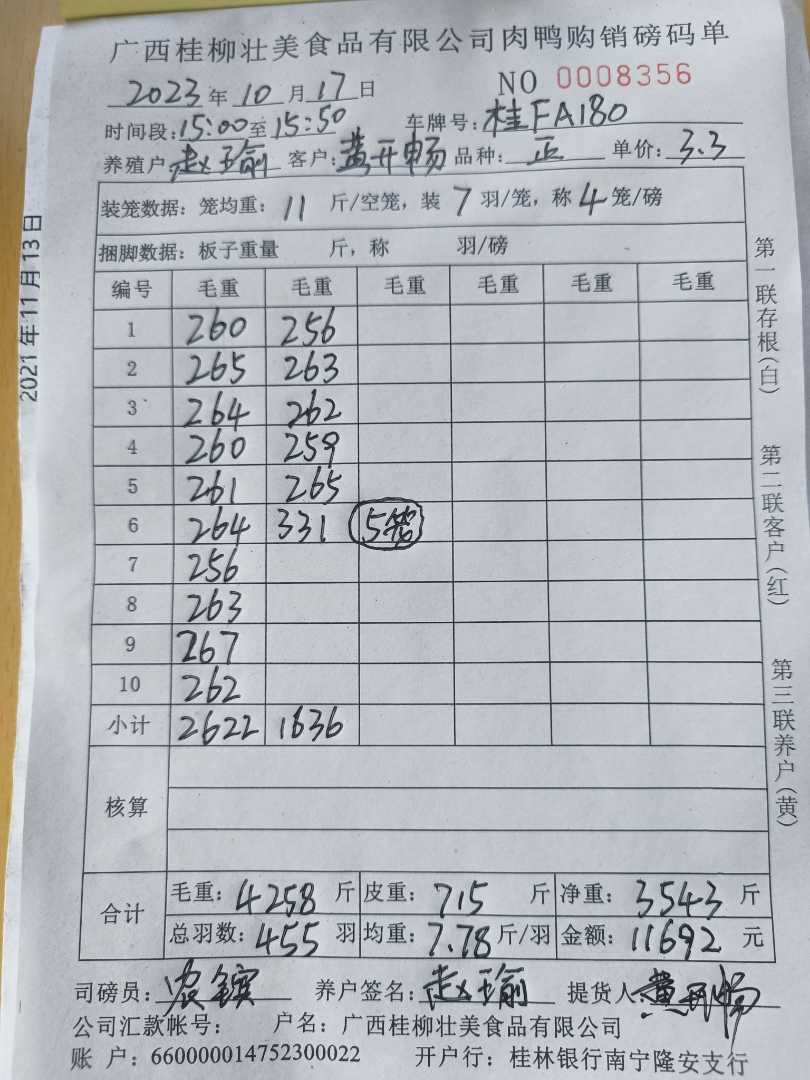 广西桂柳壮美食品有限公司肉鸭购销磅码单
2023年10月17日 NO 0008356
时间段:15:00至15:50 车牌号:桂FA180
养殖户:赵瑜 客户:黄开畅 品种:正 单价:3.3
装笼数据:笼均重:11斤/空笼,装7羽/笼,称4笼/磅
捆脚数据:板子重量 斤,称 羽/磅
编号 毛重 毛重 毛重 毛重 毛重 毛重
1 260 256
2 265 263
3 264 262
4 260 259
5 261 265
6 264 331 5笼
7 256
8 263
9 267
10 262
小计 2622 1636
核算
合计 毛重:4258斤 皮重:715斤 净重:3543斤
总羽数:455羽 均重:7.78斤/羽 金额:11692元
司磅员:农镔 养户签名:赵瑜 提货人:黄开畅
公司汇款帐号: 户名:广西桂柳壮美食品有限公司
账户:660000014752300022 开户行:桂林银行南宁隆安支行
第一联存根(白)
第二联客户(红)
第三联养户(黄)
2021年11月13日